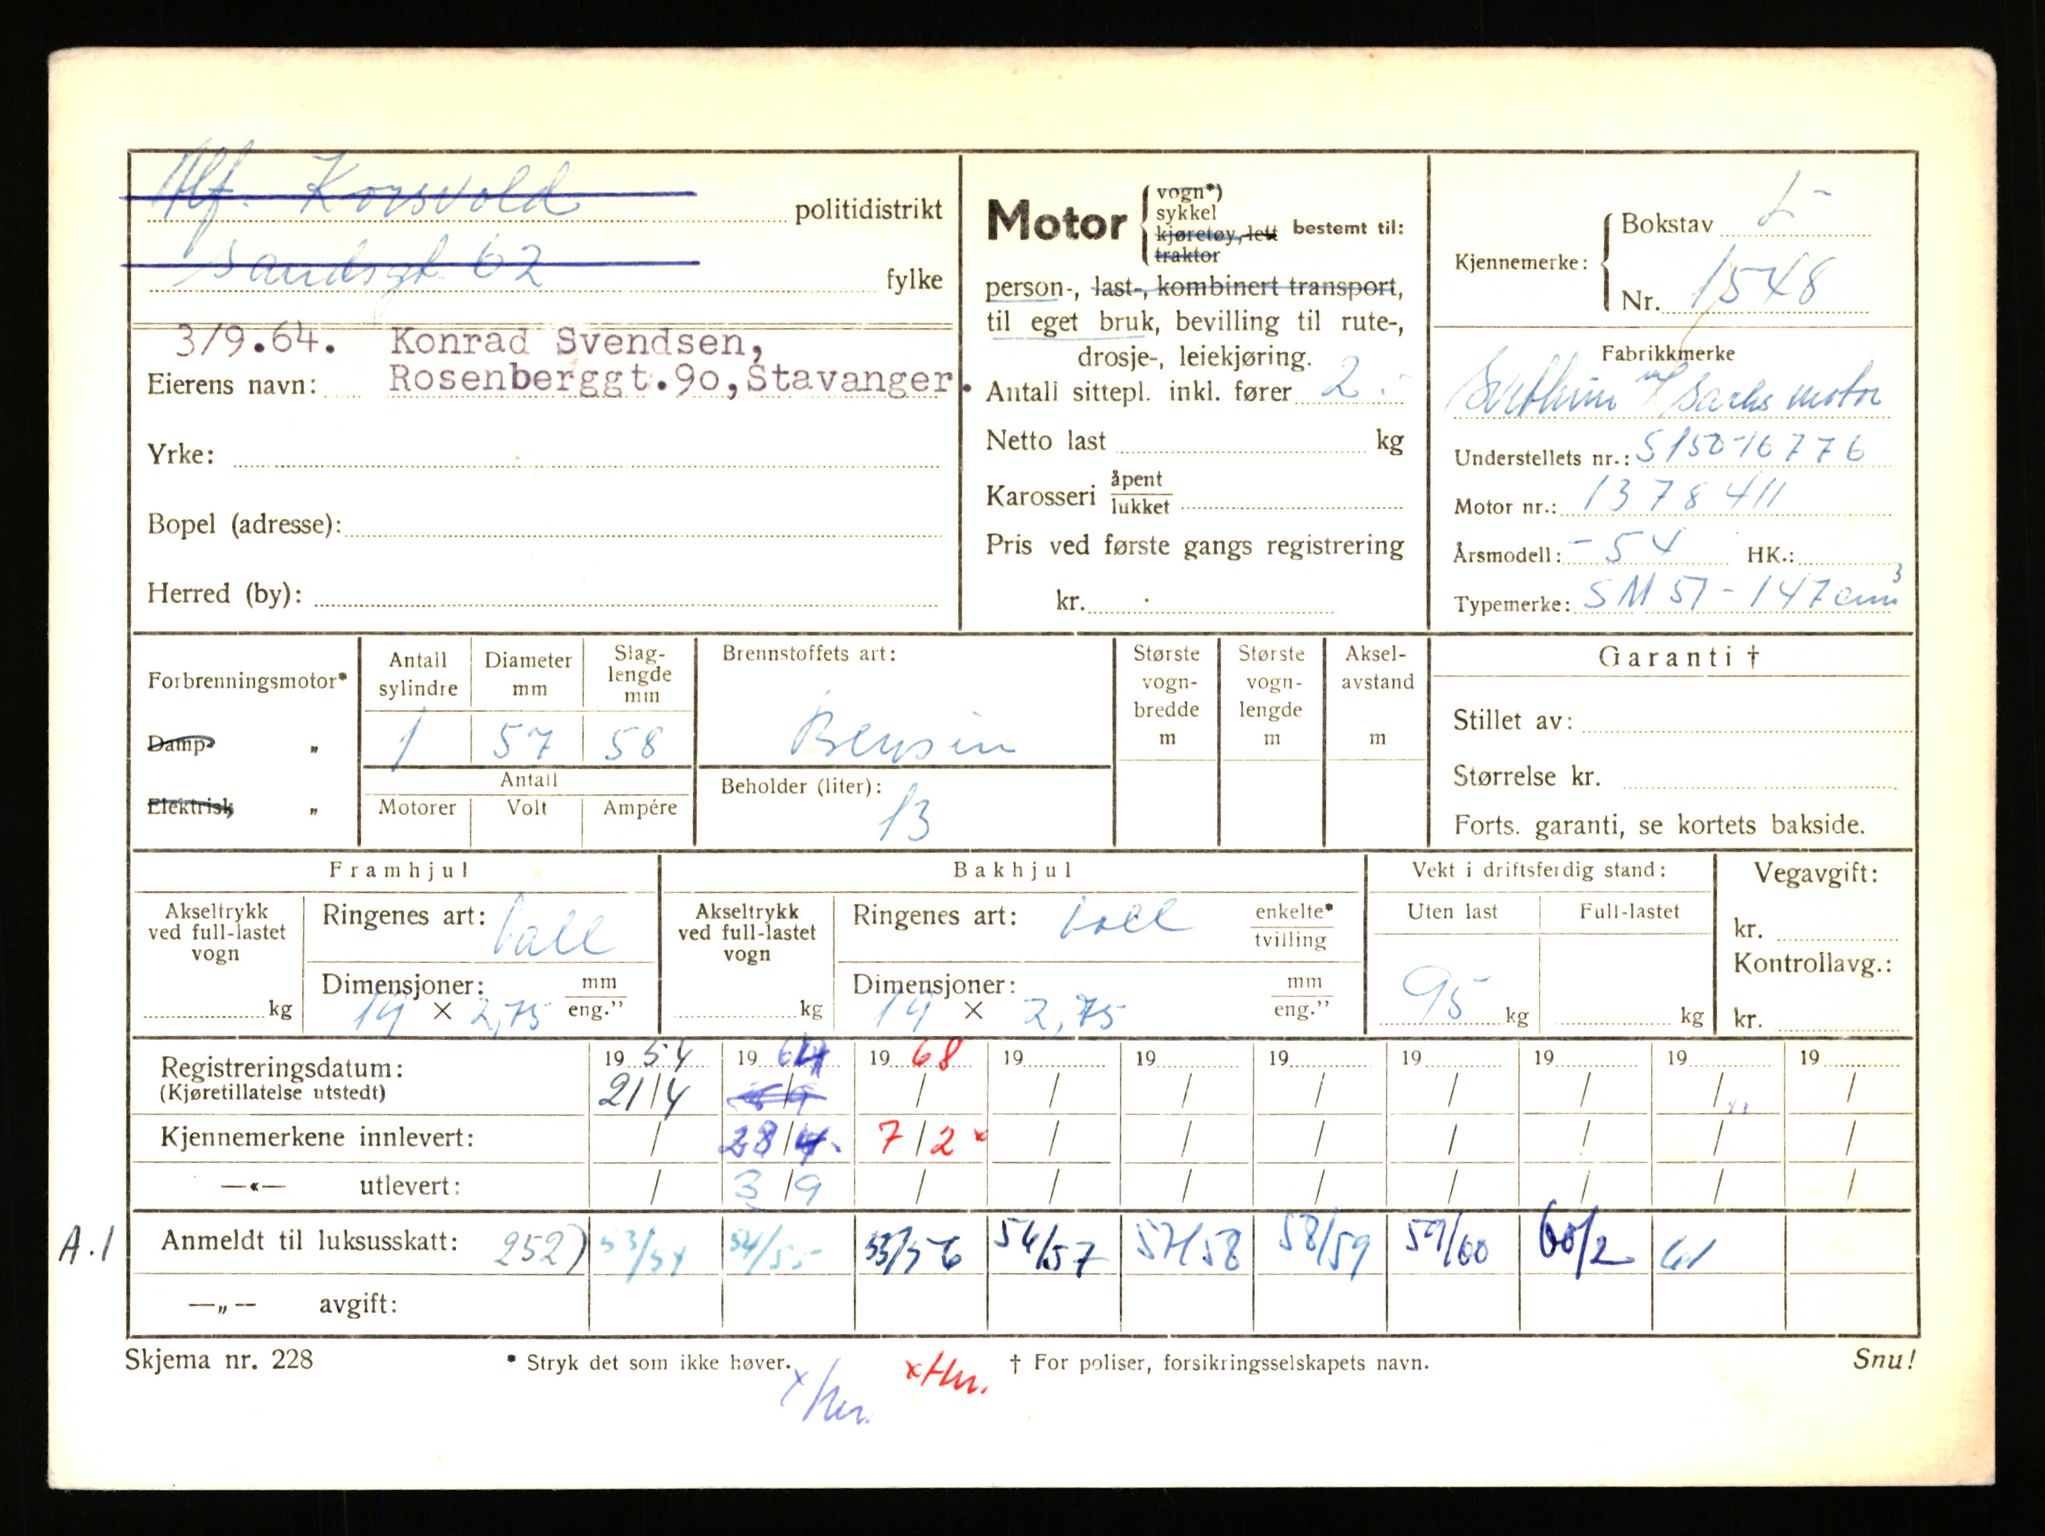 Alf. Korsvold politidistrikt
Sandsgt 62 fylke
3/9.64. Konrad Svendsen,
Eierens navn: Rosenberggt.90, Stavanger.
Yrke:
Bopel (adresse):
Herred (by):
Motor vogn*)
sykkel
kjøretøy, lett
traktor
bestemt til:
person-, last-, kombinert transport,
til eget bruk, bevilling til rute-,
drosje-, leiekjøring.
Antall sittepl. inkl. fører 2.-
Netto last kg
Karosseri åpent
lukket
Pris ved første gangs registrering
kr.
Kjennemerke: Bokstav L-
Nr. 1548
Fabrikkmerke
m/ Sachs motor
Understellets nr.: S150-16776
Motor nr.: 1378411
Årsmodell: -54 HK.:
Typemerke: SM 51 - 147 cm³
Forbrenningsmotor*
Damp- „
Elektrisk „
Antall sylindre Diameter mm Slag-lengde mm
1 57 58
Antall
Motorer Volt Ampére
Brennstoffets art:
Bensin
Beholder (liter):
13
Største vogn-bredde m
Største vogn-lengde m
Aksel-avstand m
Garanti †
Stillet av:
Størrelse kr.
Forts. garanti, se kortets bakside.
Framhjul
Akseltrykk ved full-lastet vogn
kg
Ringenes art: ball
Dimensjoner: mm
19 × 2,75 eng."
Bakhjul
Akseltrykk ved full-lastet vogn
kg
Ringenes art: ball enkelte*
tvilling
Dimensjoner: mm
19 × 2,75 eng."
Vekt i driftsferdig stand:
Uten last Full-lastet
95 kg kg
Vegavgift:
kr.
Kontrollavg.:
kr.
Registreringsdatum: 19 54 19 64 19 68 19 19 19 19 19 19 19
(Kjøretillatelse utstedt) 21/4 / / / / / / / /
Kjennemerkene innlevert: / 28/4. 7/2 x / / / / / / /
—«— utlevert: / 3/9 / / / / / / / /
A.1 Anmeldt til luksusskatt: 252) 53/54 54/55 55/56 56/57 57/58 58/59 59/60 60/2 61
—„— avgift:
Skjema nr. 228 * Stryk det som ikke høver. † For poliser, forsikringsselskapets navn. Snu!